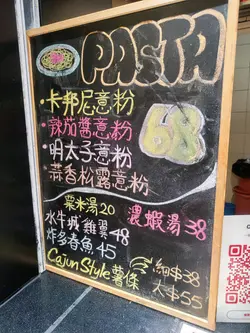 PASTA
·卡邦尼意粉
·辣茄醬意粉
·明太子意粉
·蒜香松露意粉
68
粟米湯20
濃蝦湯38
水牛城雞翼48
炸多春魚45
Cajun Style薯條
細$38
大$55